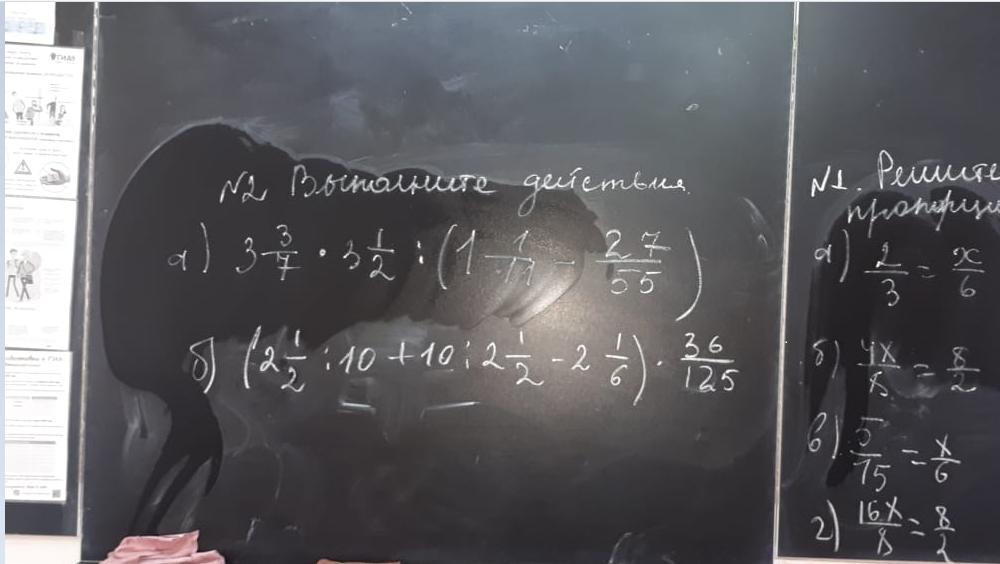 ГИА9
№2 Выполните действия.
а) 3 3/7 · 3 1/2 : (1 1/11 - 27/55)
б) (2 1/2 : 10 + 10 : 2 1/2 - 2 1/6) · 36/125
№1. Решите
пропорци
а) 2/3 = x/6
б) 4x/8 = 8/2
в) 5/15 = x/6
г) 16x/8 = 8/2